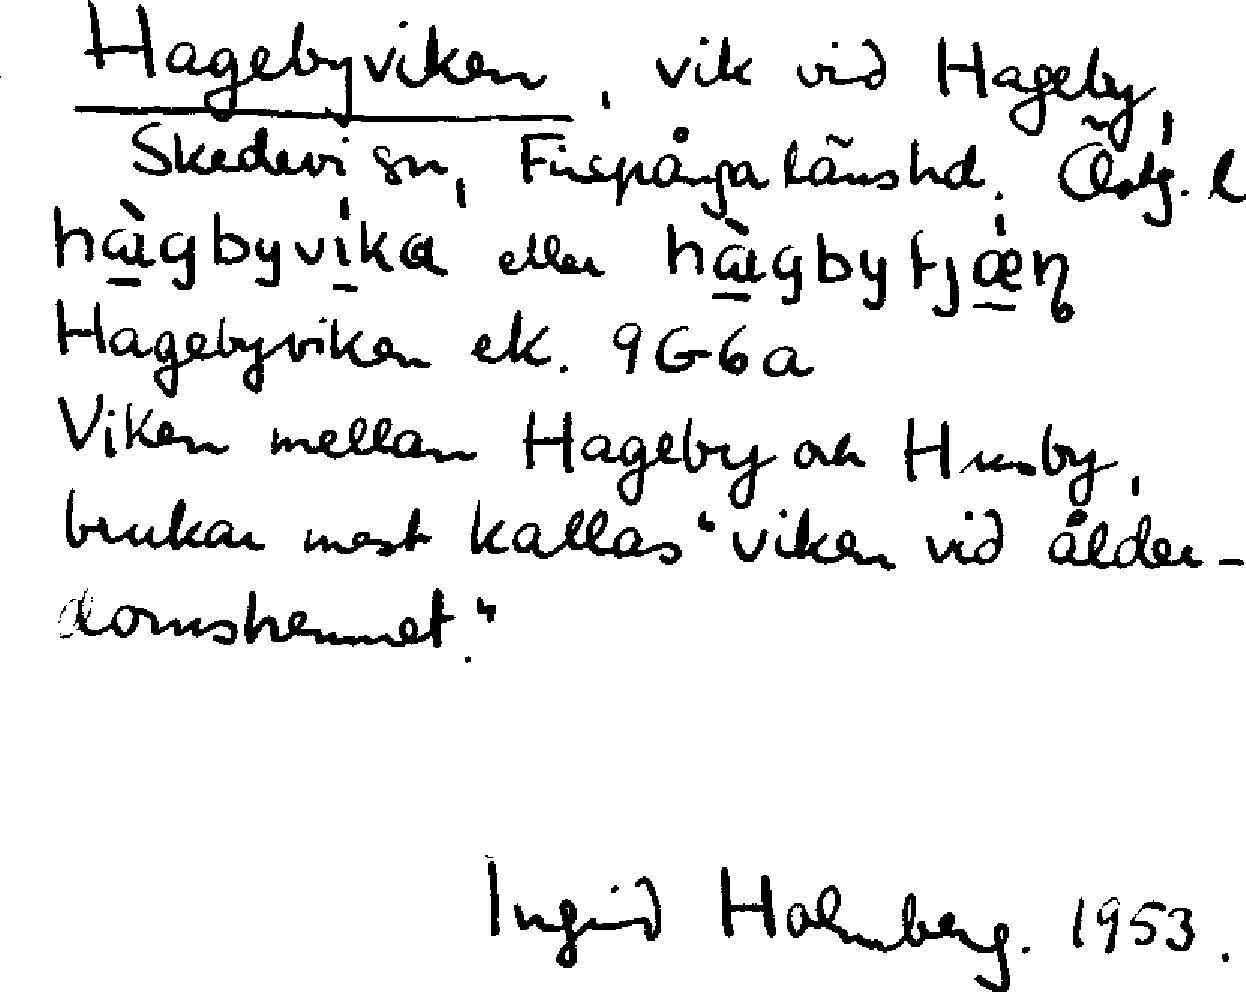 Hagebyviken, vik vid Hageby,
Skedevi sn, Finspånga länshd. Östg. l
hàgbyvíka eller hàgbytjǽɳ
Hagebyviken ek. 9G6a
Viken mellan Hageby och Husby,
brukar mest kallas "viken vid ålder-
domshemmet."
Ingrid Holmberg. 1953.